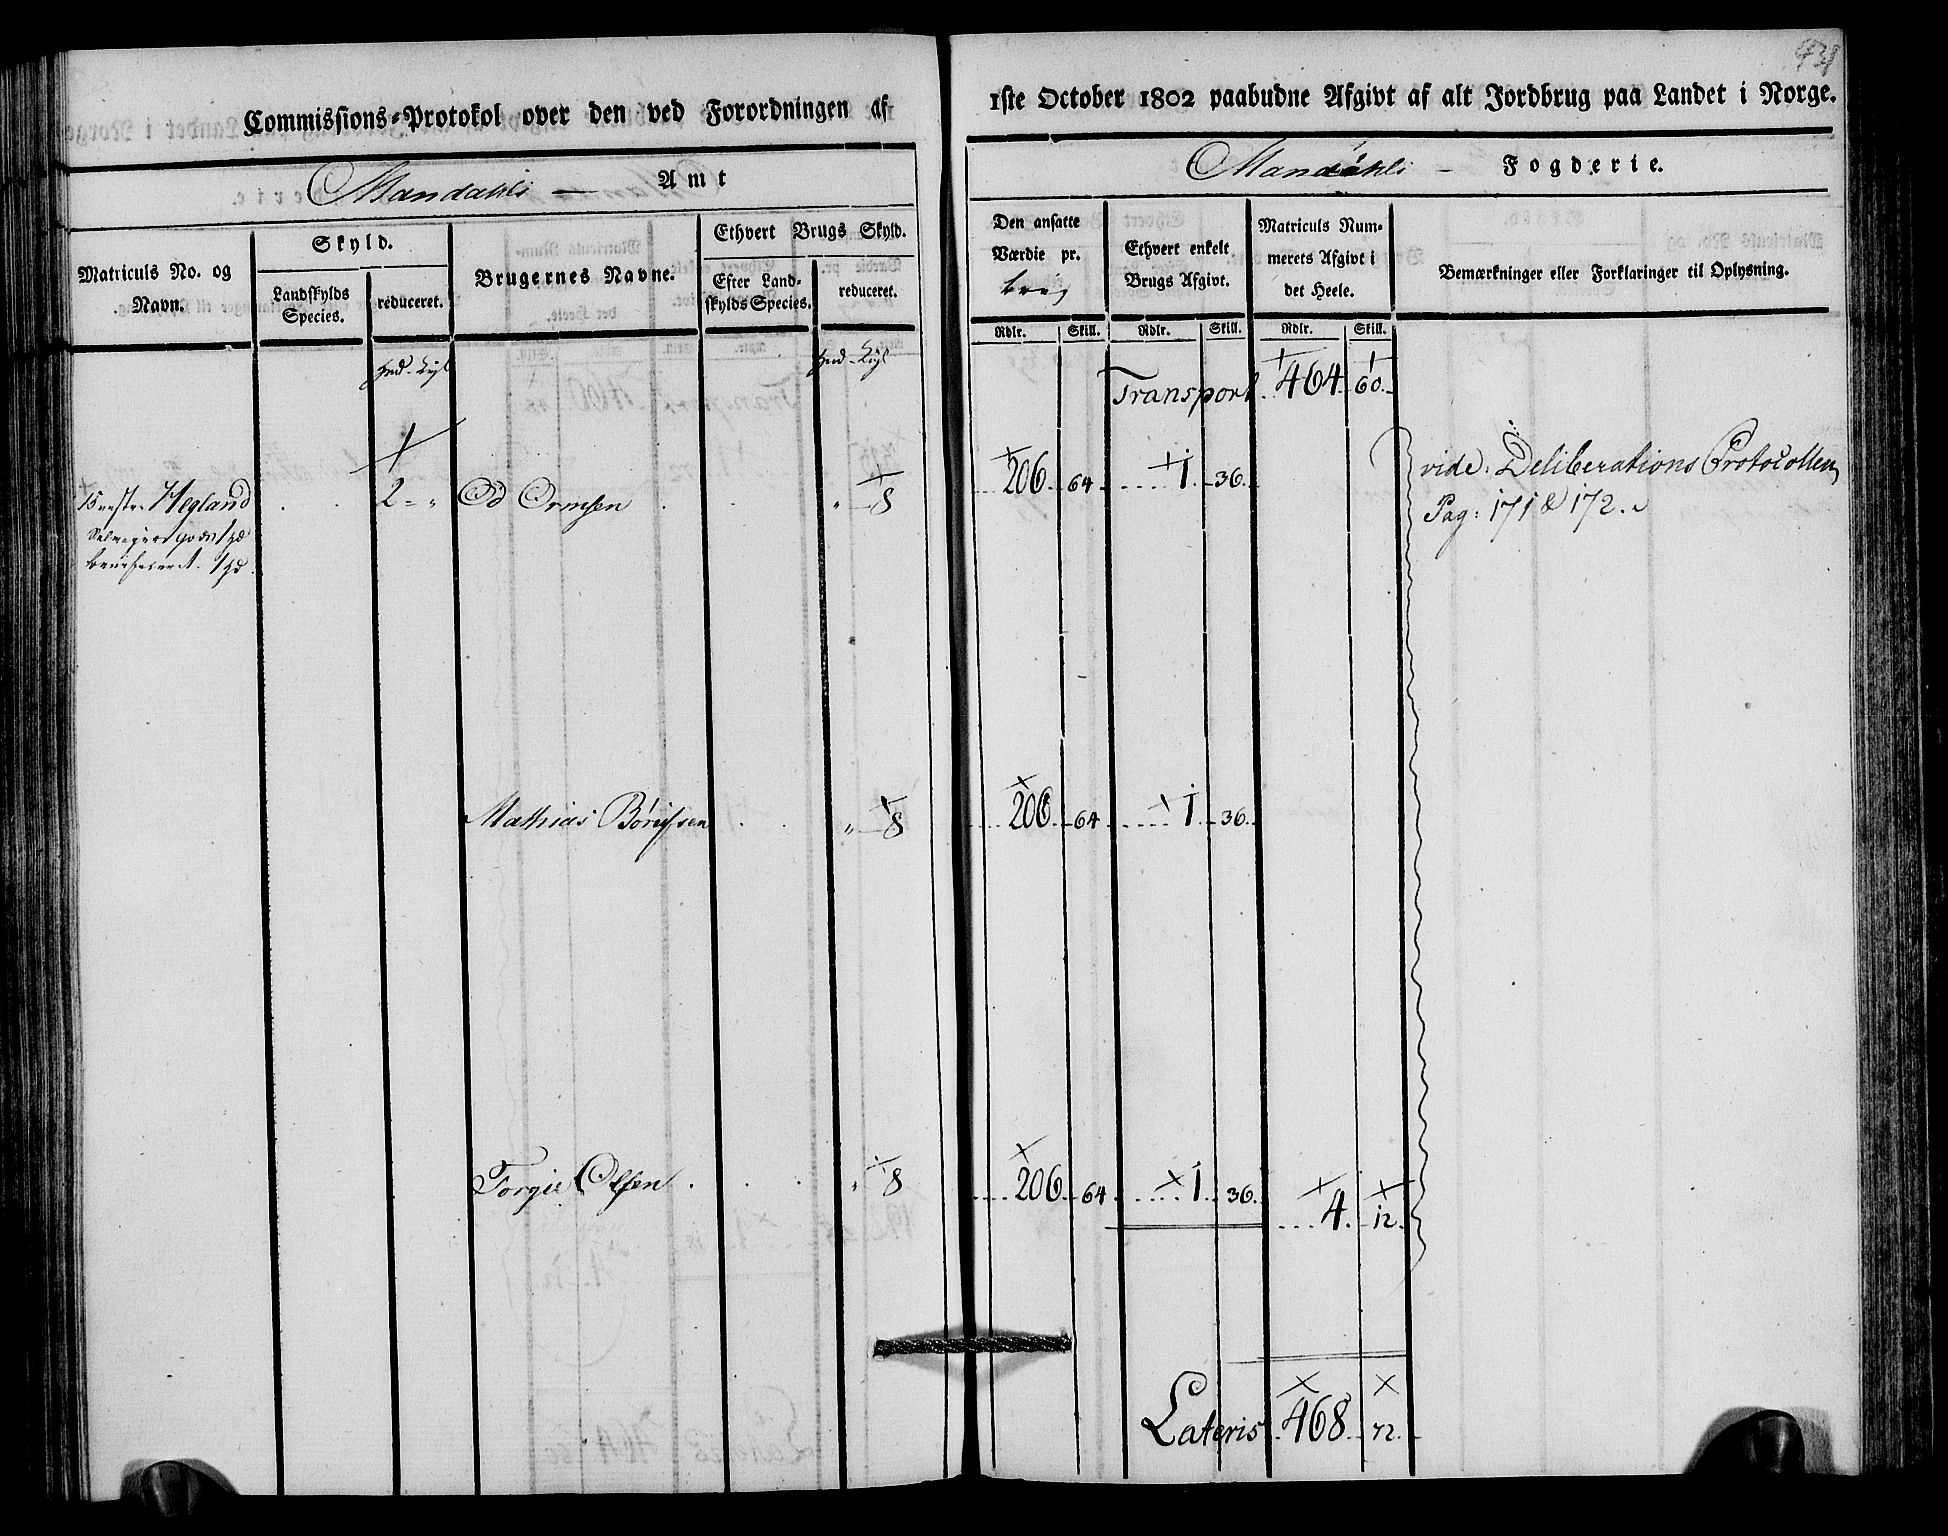 Commissions-Protokol over den ved Forordningen af
Mandahls Amt
Matriculs No. og Navn.
Skyld.
Landskylds Species.
reduceret.
Brugernes Navne.
Ethvert Brugs Skyld.
Efter Land-
skylds Species.
reduceret.
2 - "
Hegland
Od Ormsen
" 8
Mathias
" 8
Torgie Olsen
" 8
1ste October 1802 paabudne Afgivt af alt Jordbrug paa Landet i Norge.
Mandahls Fogderie.
Den ansatte
Værdie pr.
Ethvert enkelt
Brugs Afgivt.
Matriculs Num-
merets Afgivt i
det Heele.
Bemærkninger eller Forklaringer til Oplysning.
Rdlr. Skill. Rdlr. Skill. Rdlr. Skill.
Transport 464 60
206 64 1 36
vide: Deliberations Protocollen
Pag: 171 & 172.
206 64 1 36
206 64 1 36
4 12
Lateris 468 72